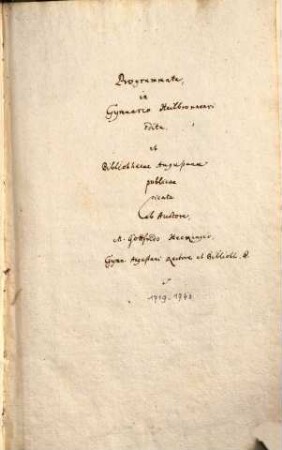 Programmata,
in
Gymnasio Heilbronnensi
edita
et
Bibliothecae Augustanae
publicae
dicata
ab Auctore,
M. Gottfrido Heckingio,
Gymn. Augustani Rectore et Biblioth. P.
1719. 1743.